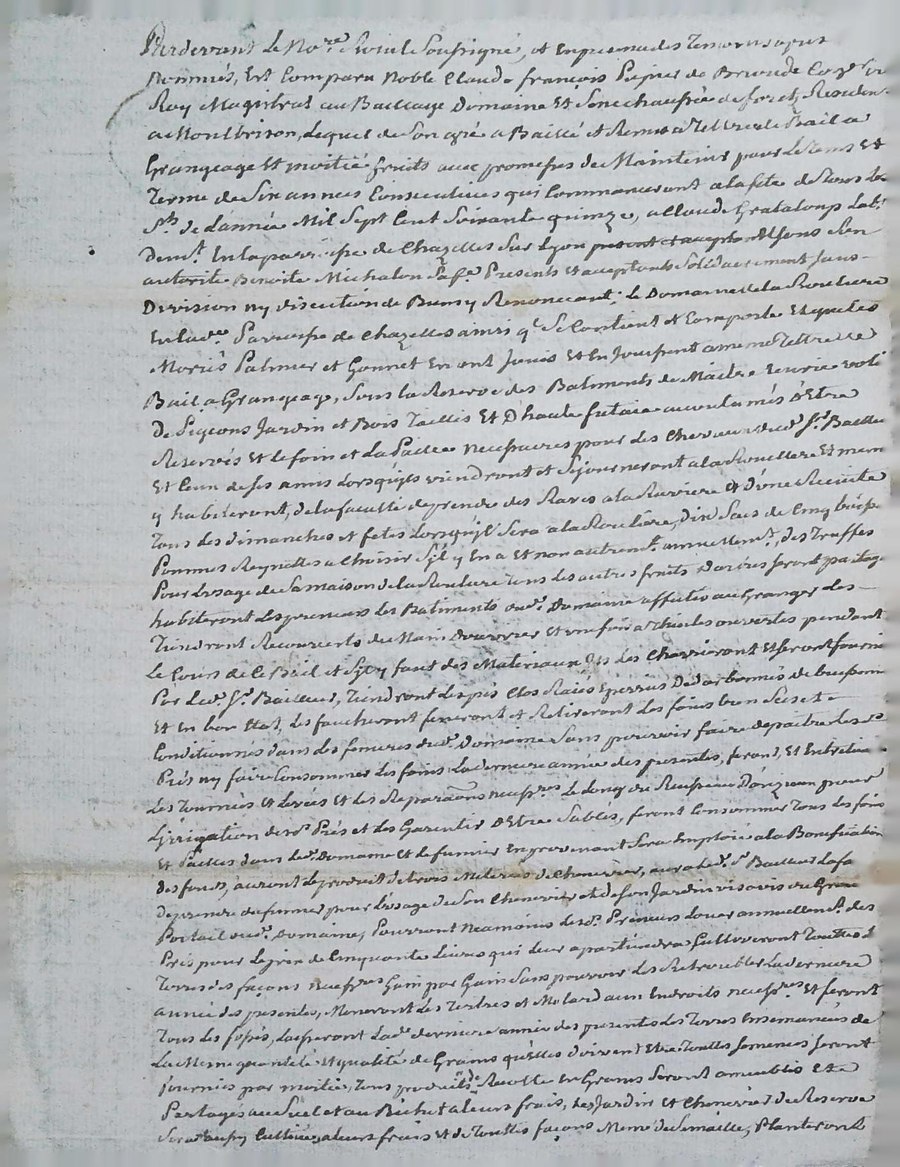 Pardevant Le No.re Royal Soussigné, et En presence des Temoins apres
Nommés, Est Comparu Noble Claude françois Pupier de Brioude Co.er du
Roy Magistrat au Bailliage Domaine Et Senechaussée de forest, Resident
a Montbrison, Lequel de Son gré a Baillé et Remis a Tittre de Bail a
Grangeage Et moitié fruits avec promesses de Maintenir pour Le tems Et
Terme de Six années Consecutives qui Commenceront a la fete de Tous Les
S.ts de L'année Mil Sept Cent Soixante quinze, a Claude Grataloup Lab.r
Dem.t En la parroisse de Chazelles Sur Lyon present et acceptant Et Sous Son
autorité Benoite Michalon Sa fe. Presents et acceptants Solidairement Sans
Division ny discution de Biens y Renonceant, Le Domaine de La Rouliere
En lad.e Parroisse de Chazelles ainsi q.e Se Contient et Comporte Et que Les
Morius Palmier et Gonnet En ont Joui Et En Jouissent a meme Tittre de
Bail a Grangeage, Sous La Reserve des Batiments de Maitre Ecurie volie
De Pigeons Jardin et Bois Taillis Et D'haute futaie accoutumés D'Etre
Reservés Et Le foin et La Paille necessaires pour Les Chevaux dud. S.r Bailleur
Et Ceux de Ses amis Lorsqu'ils viendront et Sejourneront a la Rouliere Et meme
y habiteront, de La faculté de prendre des Raves a la Raviere Et d'une
Tous Les dimanches et fetes Lorsqu'il Sera a la Rouliere, Dix Sacs de Cinq
Pommes Reynettes a Choisir S'il y En a Et non autrem.t annuellem.t, des Truffes
Pour L'usage de Sa maison de La Rouliere Tous Les autres fruits d'arbres Seront partagés
habiteront Les preneurs Les Batiments dud. Domaine affectés au Granger Les
Tiendront Recouverts de Main D'ouvrier Et a Thuiles ouvertes pendant
Le Cours de Ce Bail et S'il y faut des Materiaux Ils Les Charrieront Et Seront fournis
Par Led. S.r Bailleur, Tiendront Les prés Clos Raiés Epierrés De darbonnés de buissonnés
Et En bon Etat, Les faucheront feneront et Retireront Les foins bien Secs et
Conditionnés dans Les fenieres dud. Domaine Sans pouvoir faire depaitre Lesd.
Prés ny faire Consommer Les foins La derniere année des presentes, feront Et Entretiendront
Les Tournées Et Levées Et Les Reparaons necess.res Le Long du Ruisseau D'anzieu pour
L'irrigation desd. Prés et Les Garentir D'Etre Sablés, feront Consommer Tous Les foins
Et Pailles dans Led. Domaine Et Le fumier En provenant Sera Emploié a la Bonification
des fonds, auront Le produit de trois Miterées de Chenevier, aura Led. S.r Bailleur La fa
De prendre du fumier pour L'usage de Son Chenevier et de Son Jardin vis a vis du Grand
Portail dud. Domaine, Pourront neamoins Lesd. Preneurs Louer annuellem.t des
Prés pour Le prix de Cinquante Livres qui Leur apartiendra, Cultiveront Touttes Les
Terres des façons necess.res Gain par Gain Sans pouvoir Les Retroubler La derniere
année des presentes, Meneront Les Tertres et Molards aux Endroits necess.res Et feront
Tous Les fossés, Laisseront Lad. derniere année des presentes Les Terres Ensemencées de
La Meme quantité et qualité de Grains qu'elles doivent Etre, Touttes Semences Seront
fournies par moitié, Tous produits de Recolte En Grains Seront ameublis Et
Partagés au Suel et au Bichet a Leurs frais, Les Jardin et Chenevier de Reserve
Seront aussy Cultivés a Leurs frais et de Touttes façons Meme de Semailles, Planteront